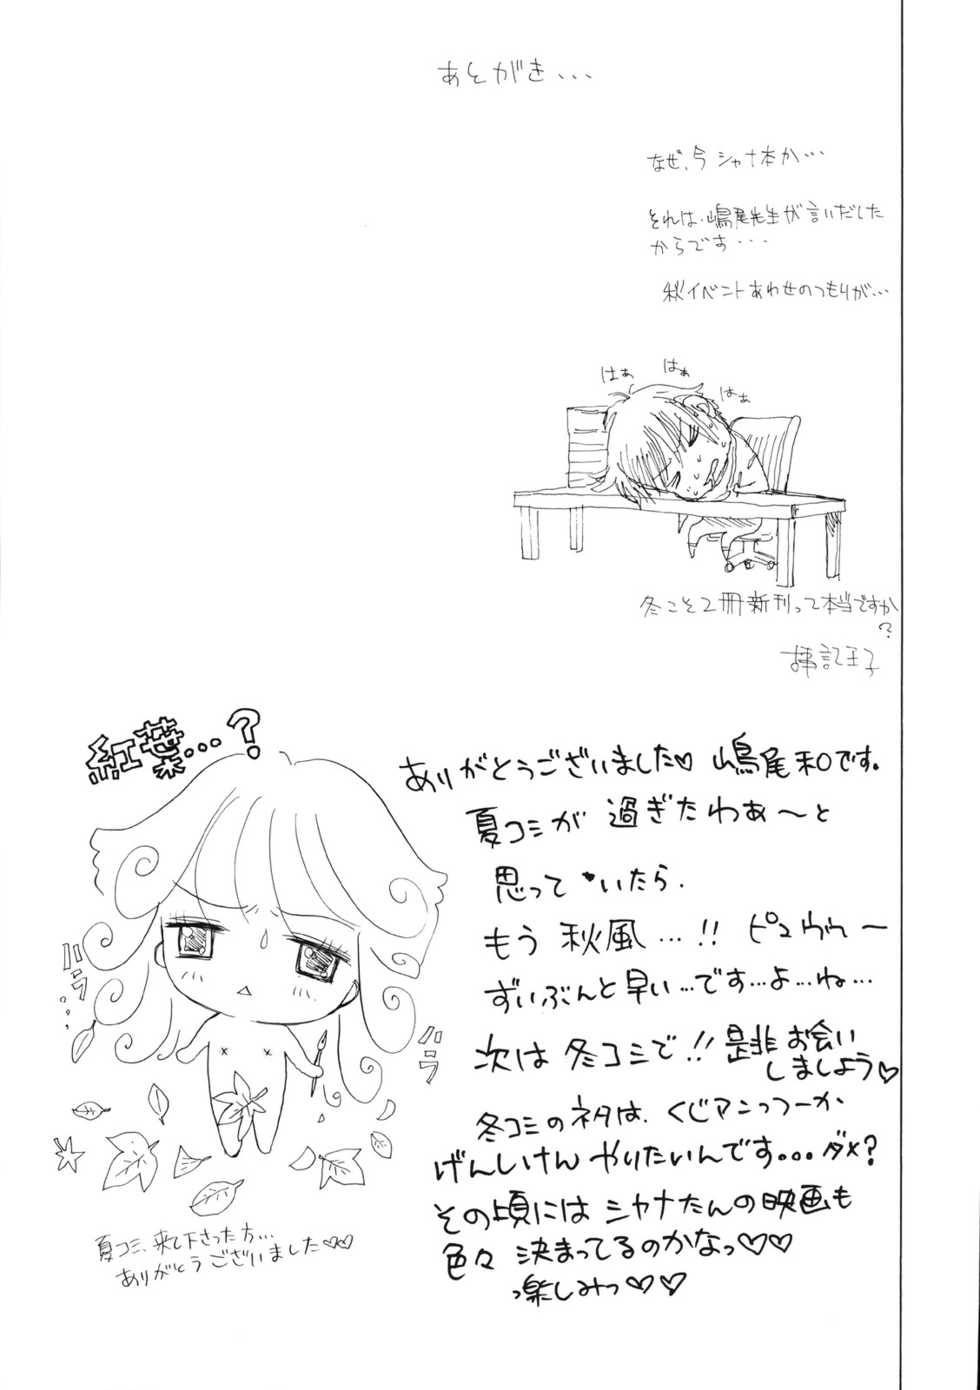 あとがき...
なぜ、今シャナ本か...
それは、嶋尾先生が言いだした
からです...
秋イベントあわせのつもりが...
はぁ
はぁ
はぁ
冬こそ2冊新刊って本当ですか
?
紅葉...?
ありがとうございました♡ 嶋尾和です。
夏コミが過ぎたわぁ〜と
思って いたら、
もう秋風...!! ピュウゥゥ〜
ずいぶんと早い...です...よ...ね...
次は冬コミで!!是非お会い
しましょう♡
冬コミのネタは、くじアンっつーか
げんしけんやりたいんです...ダメ?
その頃にはシャナたんの映画も
色々決まってるのかなっ♡♡
っ楽しみっ♡♡
ハラ
ハラ
夏コミ、来て下さった方...
ありがとうございました♡♡